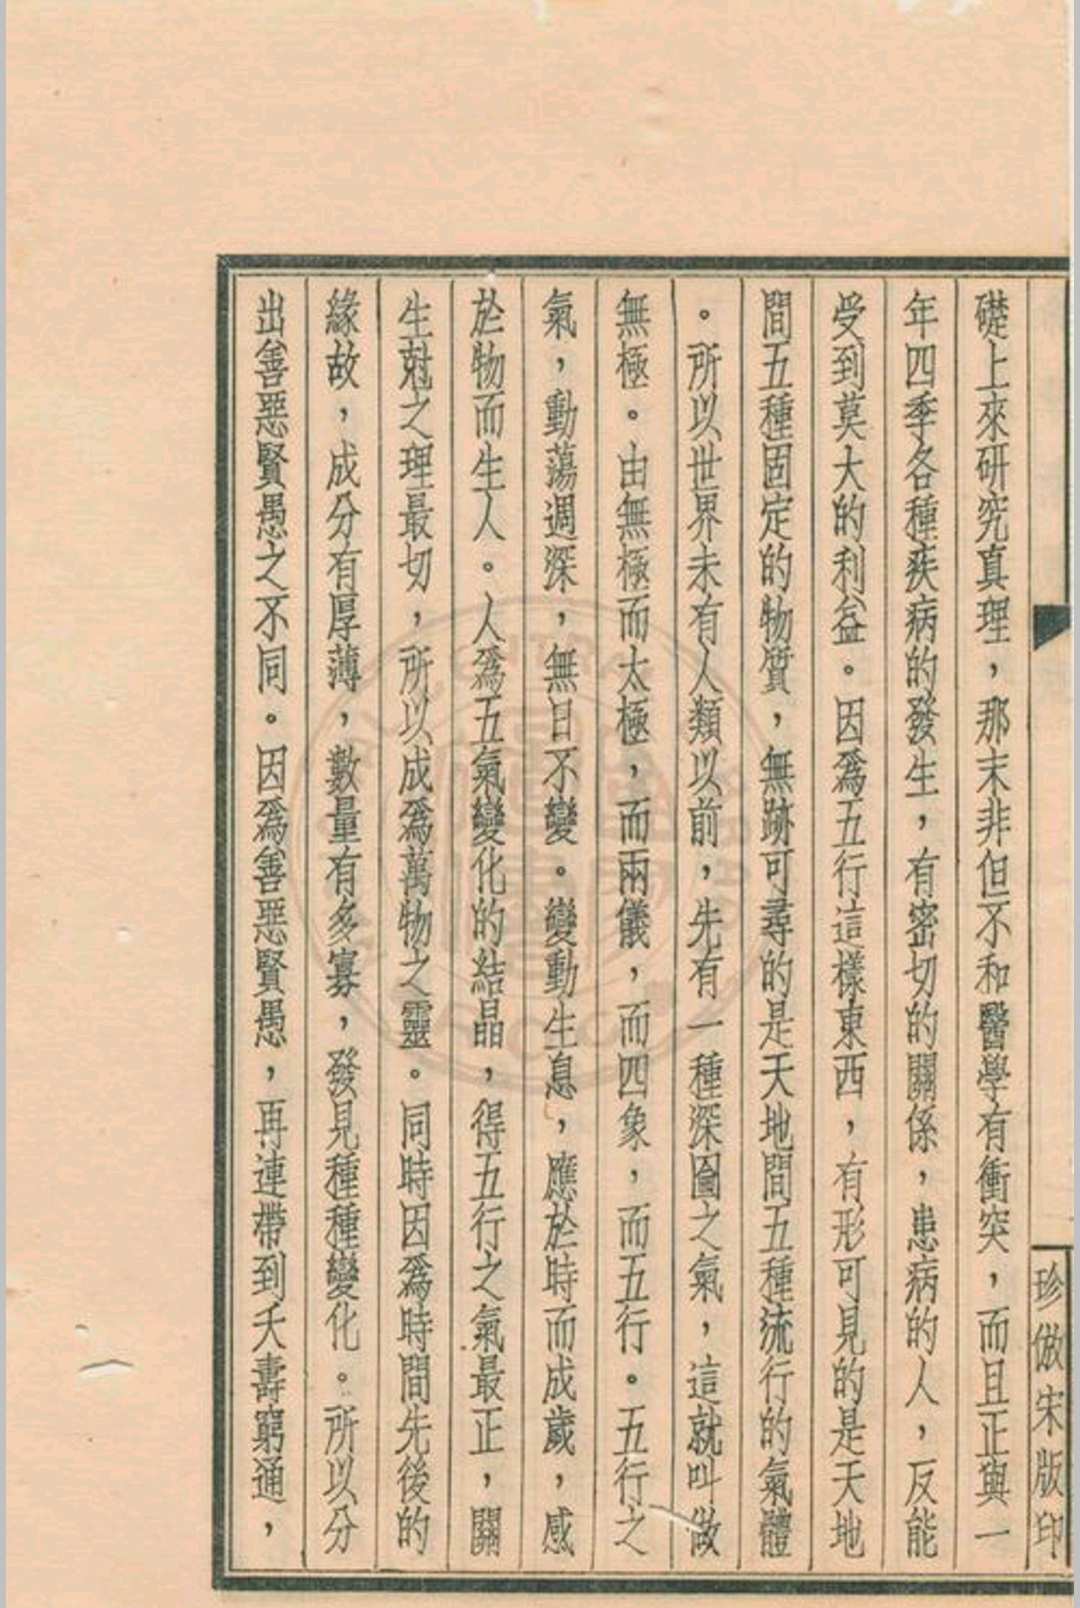 珍倣宋版印
礎上來研究真理，那末非但不和醫學有衝突，而且正與一
年四季各種疾病的發生，有密切的關係，患病的人，反能
受到莫大的利益。因爲五行這樣東西，有形可見的是天地
間五種固定的物質，無跡可尋的是天地間五種流行的氣體
。所以世界未有人類以前，先有一種深圇之氣，這就叫做
無極。由無極而太極，而兩儀，而四象，而五行。五行之
氣，動蕩週深，無日不變。變動生息，應於時而成歲，感
於物而生人。人爲五氣變化的結晶，得五行之氣最正，關
生尅之理最切，所以成爲萬物之靈。同時因爲時間先後的
緣故，成分有厚薄，數量有多寡，發見種種變化。所以分
出善惡賢愚之不同。因爲善惡賢愚，再連帶到夭壽窮通，